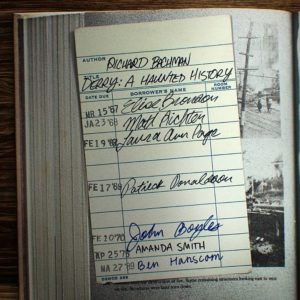 AUTHOR RICHARD BACHMAN
TITLE DERRY: A HAUNTED HISTORY
DATE DUE BORROWER'S NAME ROOM NUMBER
MR 15 '67 Elise Brandon
JA 23 '68 Matt Richter
FE 19 Laura Ann Page
FE 17 '69 Patrick Donaldson
FE 10 '70 John Boyles
AMANDA SMITH
Ben Hanscom